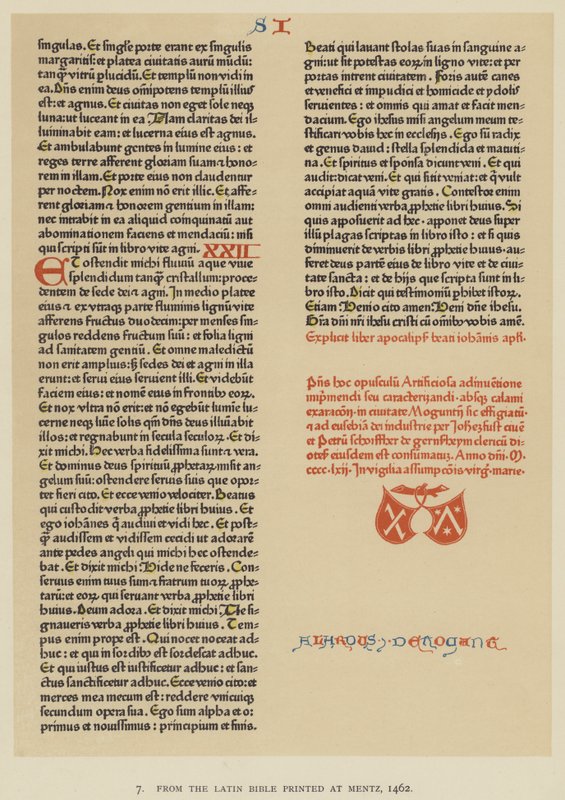 S I
singulas. Et singl'e porte erant ex singulis
margaritis: et platea ciuitatis aurū mūdū:
tanq̄ vitrū ꝑlucidū. Et templū non vidi in
ea. Dn̄s enim deus om̄ipotens templū illius
est: et agnus. Et ciuitas non eget sole neqꝫ
luna: ut luceant in ea Nam claritas dei il-
luminabit eam: et lucerna eius est agnus.
Et ambulabunt gentes in lumine eius: et
reges terre afferent gloriam suam ⁊ hono-
rem in illam. Et porte eius non claudentur
per noctem. Nox enim nō erit illic. Et affe-
rent gloriam ⁊ honorem gentium in illam:
nec intrabit in ea aliquid coinquinatū aut
abominationem faciens et mendaciū: nisi
qui scripti sūt in libro vite agni. XXII
ET ostendit michi fluuiū aque viue
splendidum tanq̄ cristallum: proce-
dentem de sede dei ⁊ agni. In medio platee
eius ⁊ ex vtraqꝫ parte fluminis lignū vite
afferens fructus duodecim: per menses sin-
gulos reddens fructum suū: et folia ligni
ad sanitatem gentiū. Et omne maledictū
non erit amplius: sꝫ sedes dei et agni in illa
erunt: et serui eius seruient illi. Et videbūt
faciem eius: et nomē eius in frontibꝰ eoꝝ.
Et nox vltra nō erit: et nō egebūt lumīe lu-
cerne neqꝫ lumīe solis qm̄ dn̄s deus illūabit
illos: et regnabunt in secula seculoꝝ. Et di-
xit michi. Hec verba fidelissima sunt ⁊ vera.
Et dominus deus spirituū ꝓphetaꝝ misit an-
gelum suū: ostendere seruis suis que opor-
tet fieri cito. Et ecce venio velociter. Beatus
qui custodit verba ꝓphetie libri huius. Et
ego iohānes q̇ audiui et vidi hec. Et post-
q̄ audissem et vidissem cecidi ut adorarē
ante pedes angeli qui michi hec ostende-
bat. Et dixit michi. Vide ne feceris. Con-
seruus enim tuus sum ⁊ fratrum tuoꝝ ꝓphe-
tarū: et eoꝝ qui seruant verba ꝓphetie libri
huius. Deum adora. Et dixit michi. Ne si-
gnaueris verba ꝓphetie libri huius. Tem-
pus enim prope est. Qui nocet noceat ad-
huc: et qui in sordibꝰ est sordescat adhuc.
Et qui iustus est iustificetur adhuc: et san-
ctus sanctificetur adhuc. Ecce venio cito: et
merces mea mecum est: reddere vnicuiqꝫ
secundum opera sua. Ego sum alpha et o:
primus et nouissimus: principium et finis.
Beati qui lauant stolas suas in sanguine a-
gni: ut sit potestas eoꝝ in ligno vite: et per
portas intrent ciuitatem. Foris autē canes
et venefici et impudici et homicide et ydolis
seruientes: et omnis qui amat et facit men-
dacium. Ego ihesus misi angelum meum te-
stificari vobis hec in ecclesijs. Ego sū radix
et genus dauid: stella splendida et matuti-
na. Et spiritus et sponsa dicunt veni. Et qui
audit: dicat veni. Et qui sitit veniat: et q̇ vult
accipiat aquā vite gratis. Contestor enim
omni audienti verba ꝓphetie libri huius. Si
quis apposuerit ad hec · apponet deus super
illū plagas scriptas in libro isto: et si quis
diminuerit de verbis libri ꝓphetie huius · au-
feret deus partē eius de libro vite et de ciui-
tate sancta: et de hijs que scripta sunt in li-
bro isto. Dicit qui testimoniū ꝑhibet istoꝝ.
Etiam. Venio cito amen. Veni dn̄e ihesu.
Gr̄a dn̄i nr̄i ihesu cristi cū om̄ibꝰ vobis amē.
Explicit liber apocalipsꝭ beati iohānis apl'i.
Pn̄s hoc opusculū Artificiosa adinuētione
imp̄mendi seu caracterizandi · absqꝫ calami
exaracōn · in ciuitate Moguntn̄ sic effigiatū ·
⁊ ad eusebiā dei industrie per Joh̄eꝫ fust ciuē
et Petrū schoiffher de gernsheym clericū di-
otesꝭ eiusdem est consumatū. Anno dn̄i M.
cccc lxij. In vigilia assumpcōis virḡ marie.
7. FROM THE LATIN BIBLE PRINTED AT MENTZ, 1462.